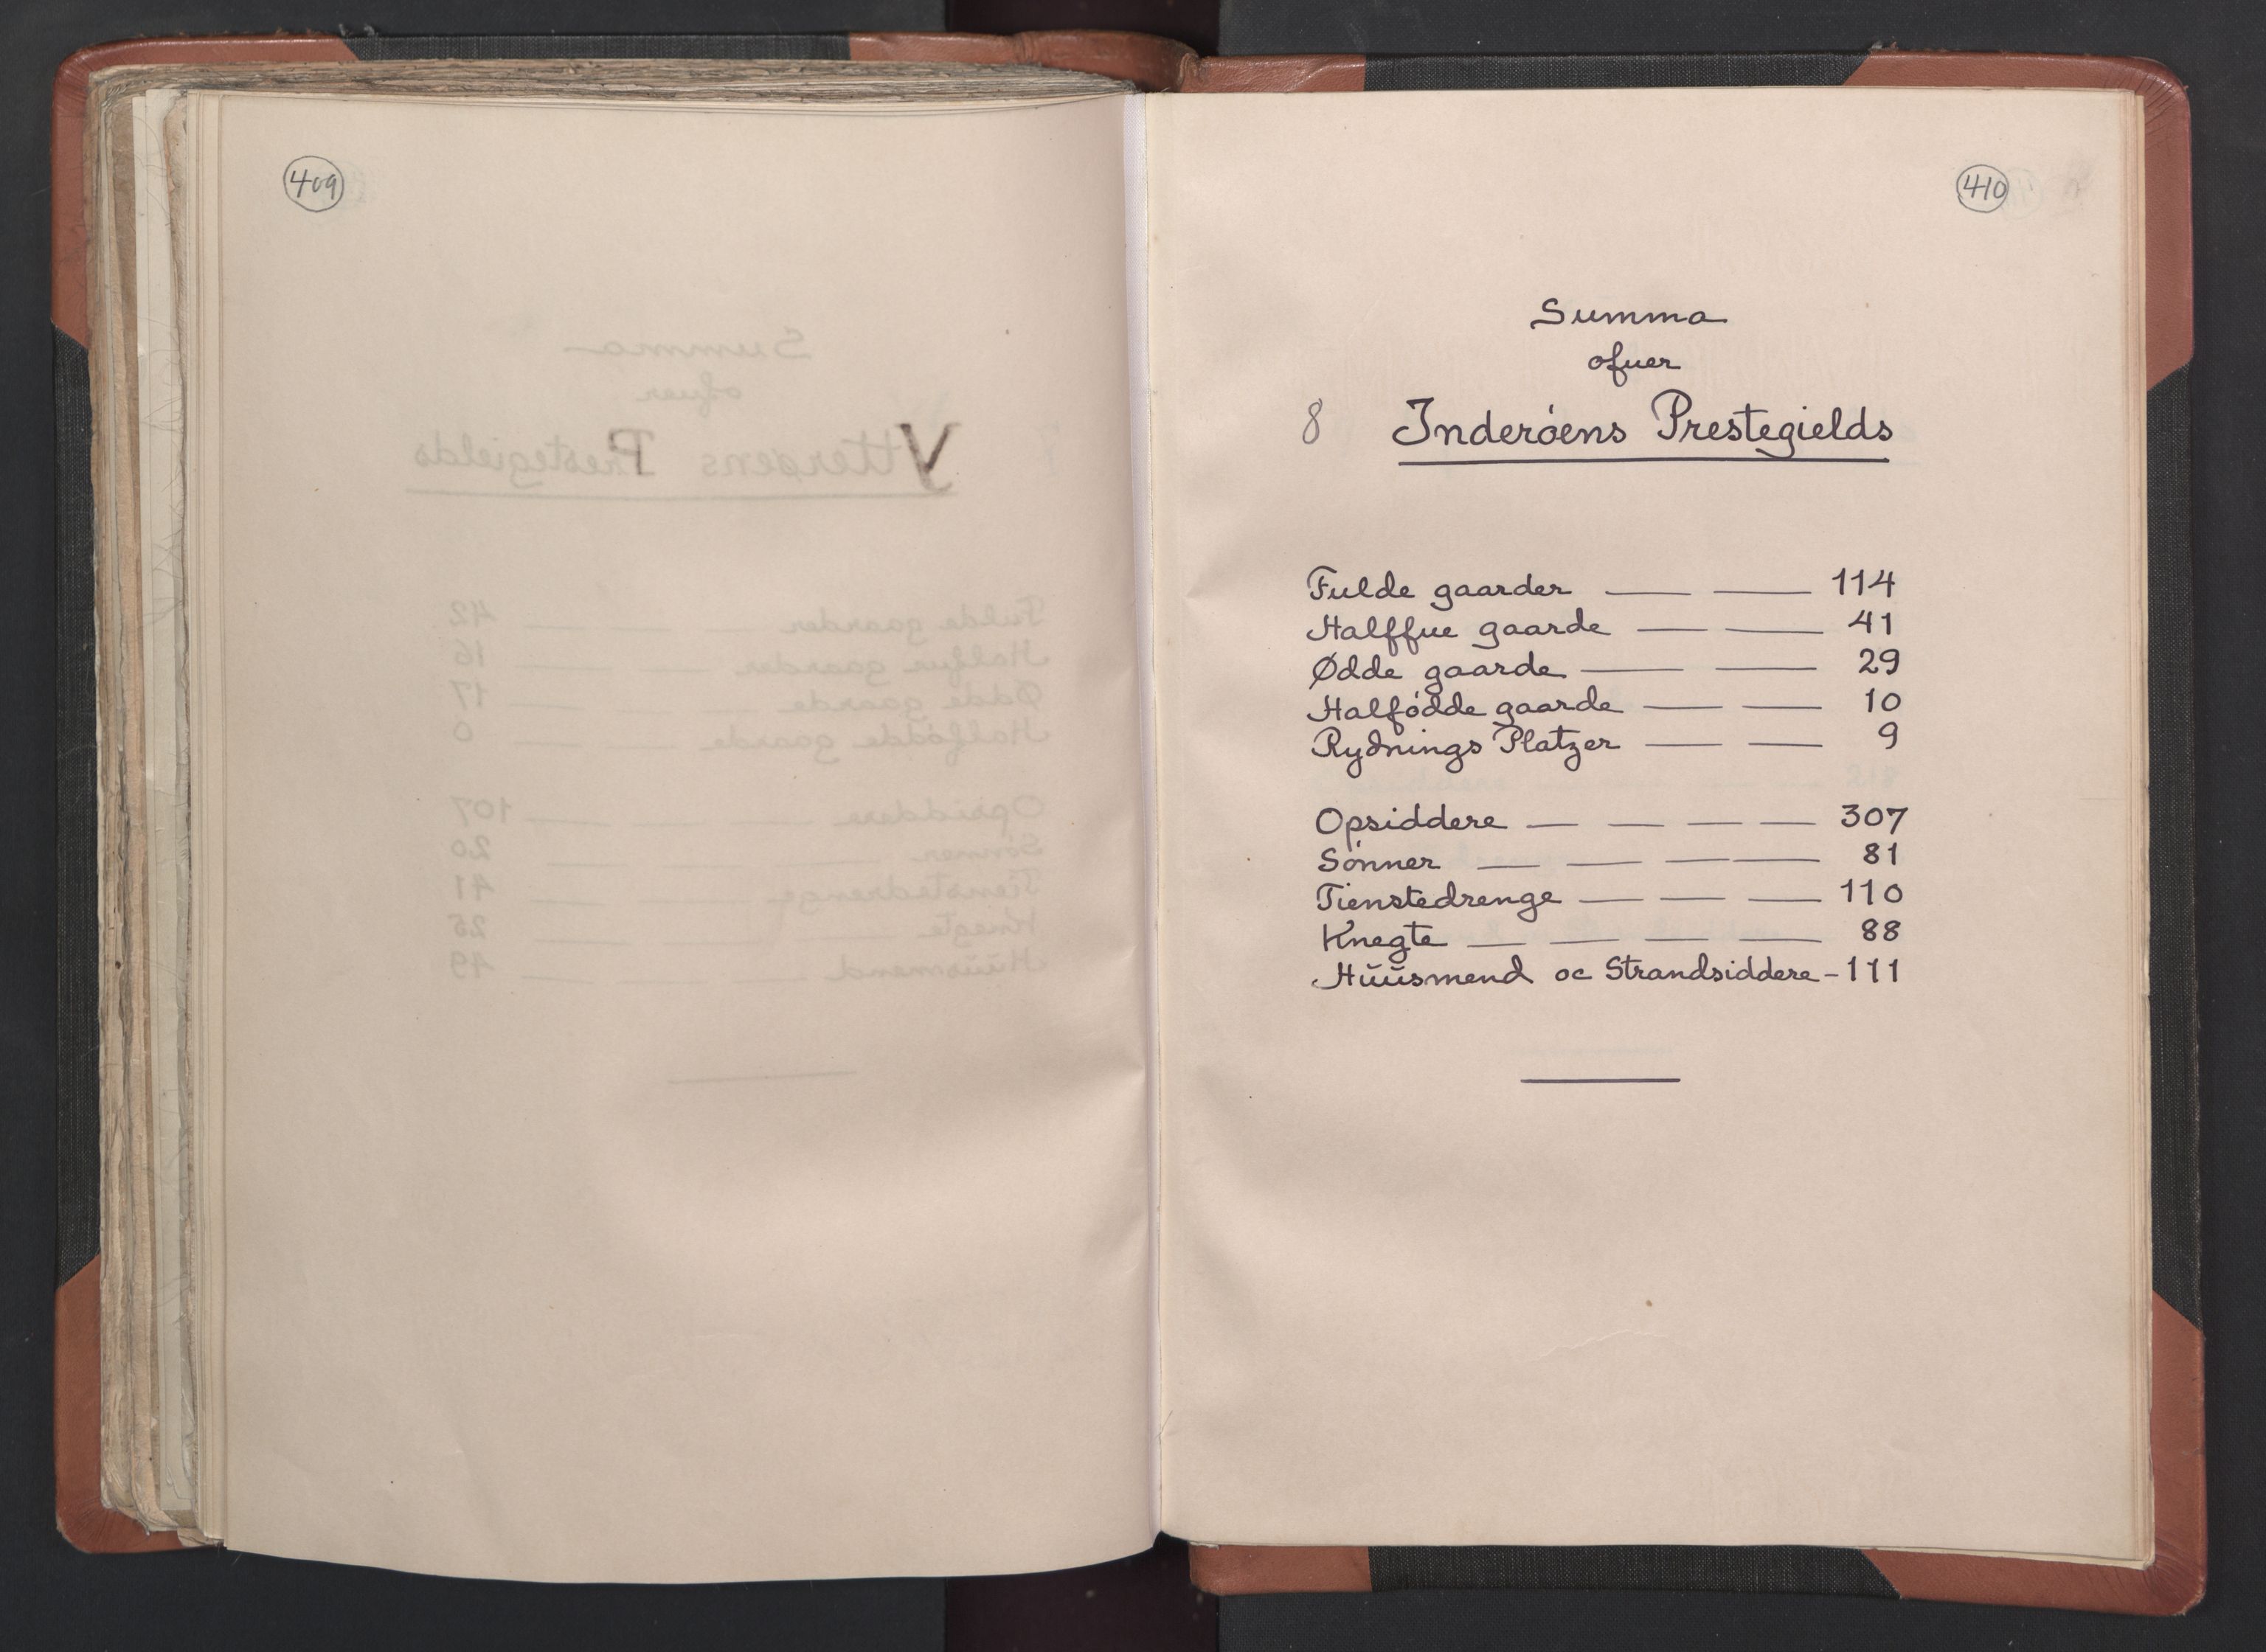 409
410
Summa
ofuer
8 Inderóens Prestegields
Fulde gaarder — — 114
Halffue gaarde — — 41
Ødde gaarde — — 29
Halfódde gaarde — — 10
Rydnings Platzer — — 9
Opsiddere — — — — 307
Sónner — — — — 81
Tienstedrenge — — — 110
Knegte — — — — 88
Húúsmend oc Strandsiddere - 111